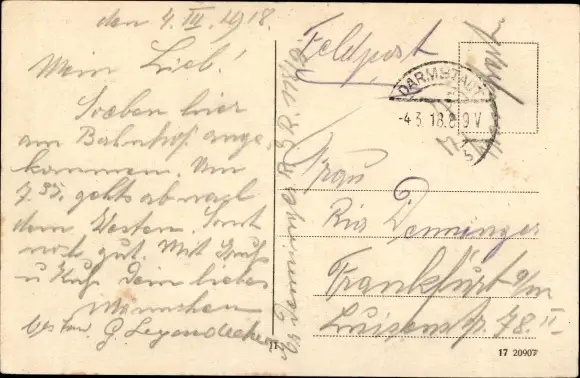 den 4. III. 1918.
Mein Lieb!
Soeben hier
am Bahnhof ange
kommen. Um
7.35. gehts ab nach
dem Westen. Sonst
noch gut. Mit Gruß
u Kuß Dein liebes
Männchen
Feldpost
DARMSTADT
-4.3.18.8-9V
Frau
Ria Denninger
Frankfurt a/m
Luisenstr. 78. II
11
17 20907